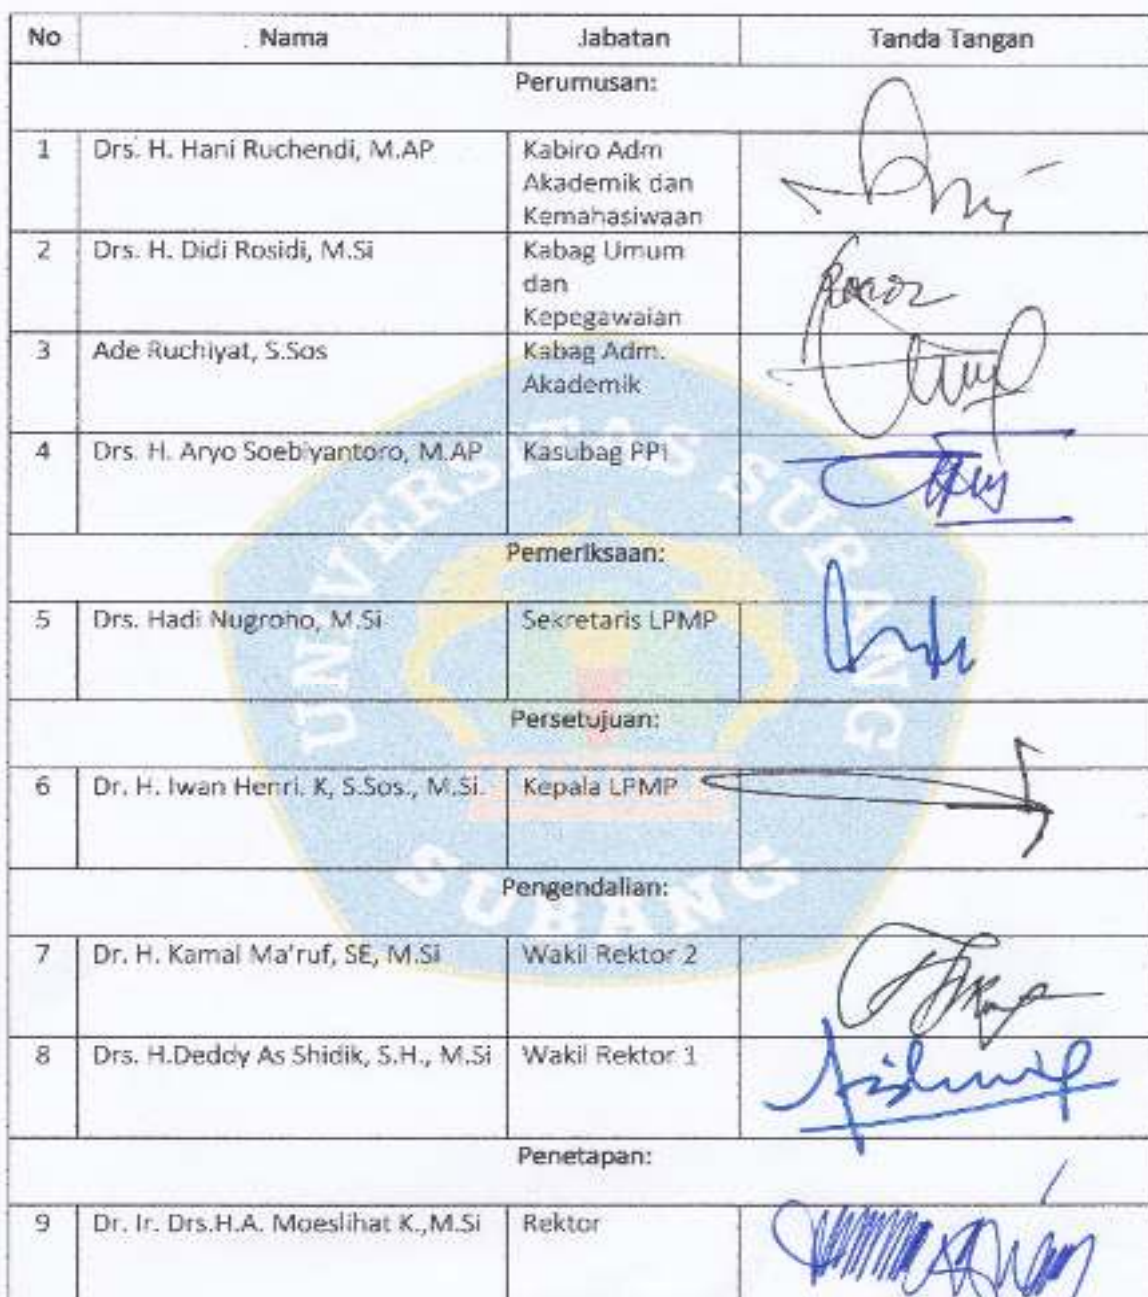 No Nama Jabatan Tanda Tangan
Perumusan:
1 Drs. H. Hani Ruchendi, M.AP Kabiro Adm
Akademik dan
Kemahasiwaan
2 Drs. H. Didi Rosidi, M.Si Kabag Umum
dan
Kepegawaian
3 Ade Ruchiyat, S.Sos Kabag Adm.
Akademik
4 Drs. H. Aryo Soebiyantoro, M.AP Kasubag PPI
Pemeriksaan:
5 Drs. Hadi Nugroho, M.Si Sekretaris LPMP
Persetujuan:
6 Dr. H. Iwan Henri. K, S.Sos., M.Si. Kepala LPMP
Pengendalian:
7 Dr. H. Kamal Ma'ruf, SE, M.Si Wakil Rektor 2
8 Drs. H.Deddy As Shidik, S.H., M.Si Wakil Rektor 1
Penetapan:
9 Dr. Ir. Drs.H.A. Moeslihat K.,M.Si Rektor
UNIVERSITAS SUBANG
SUBANG